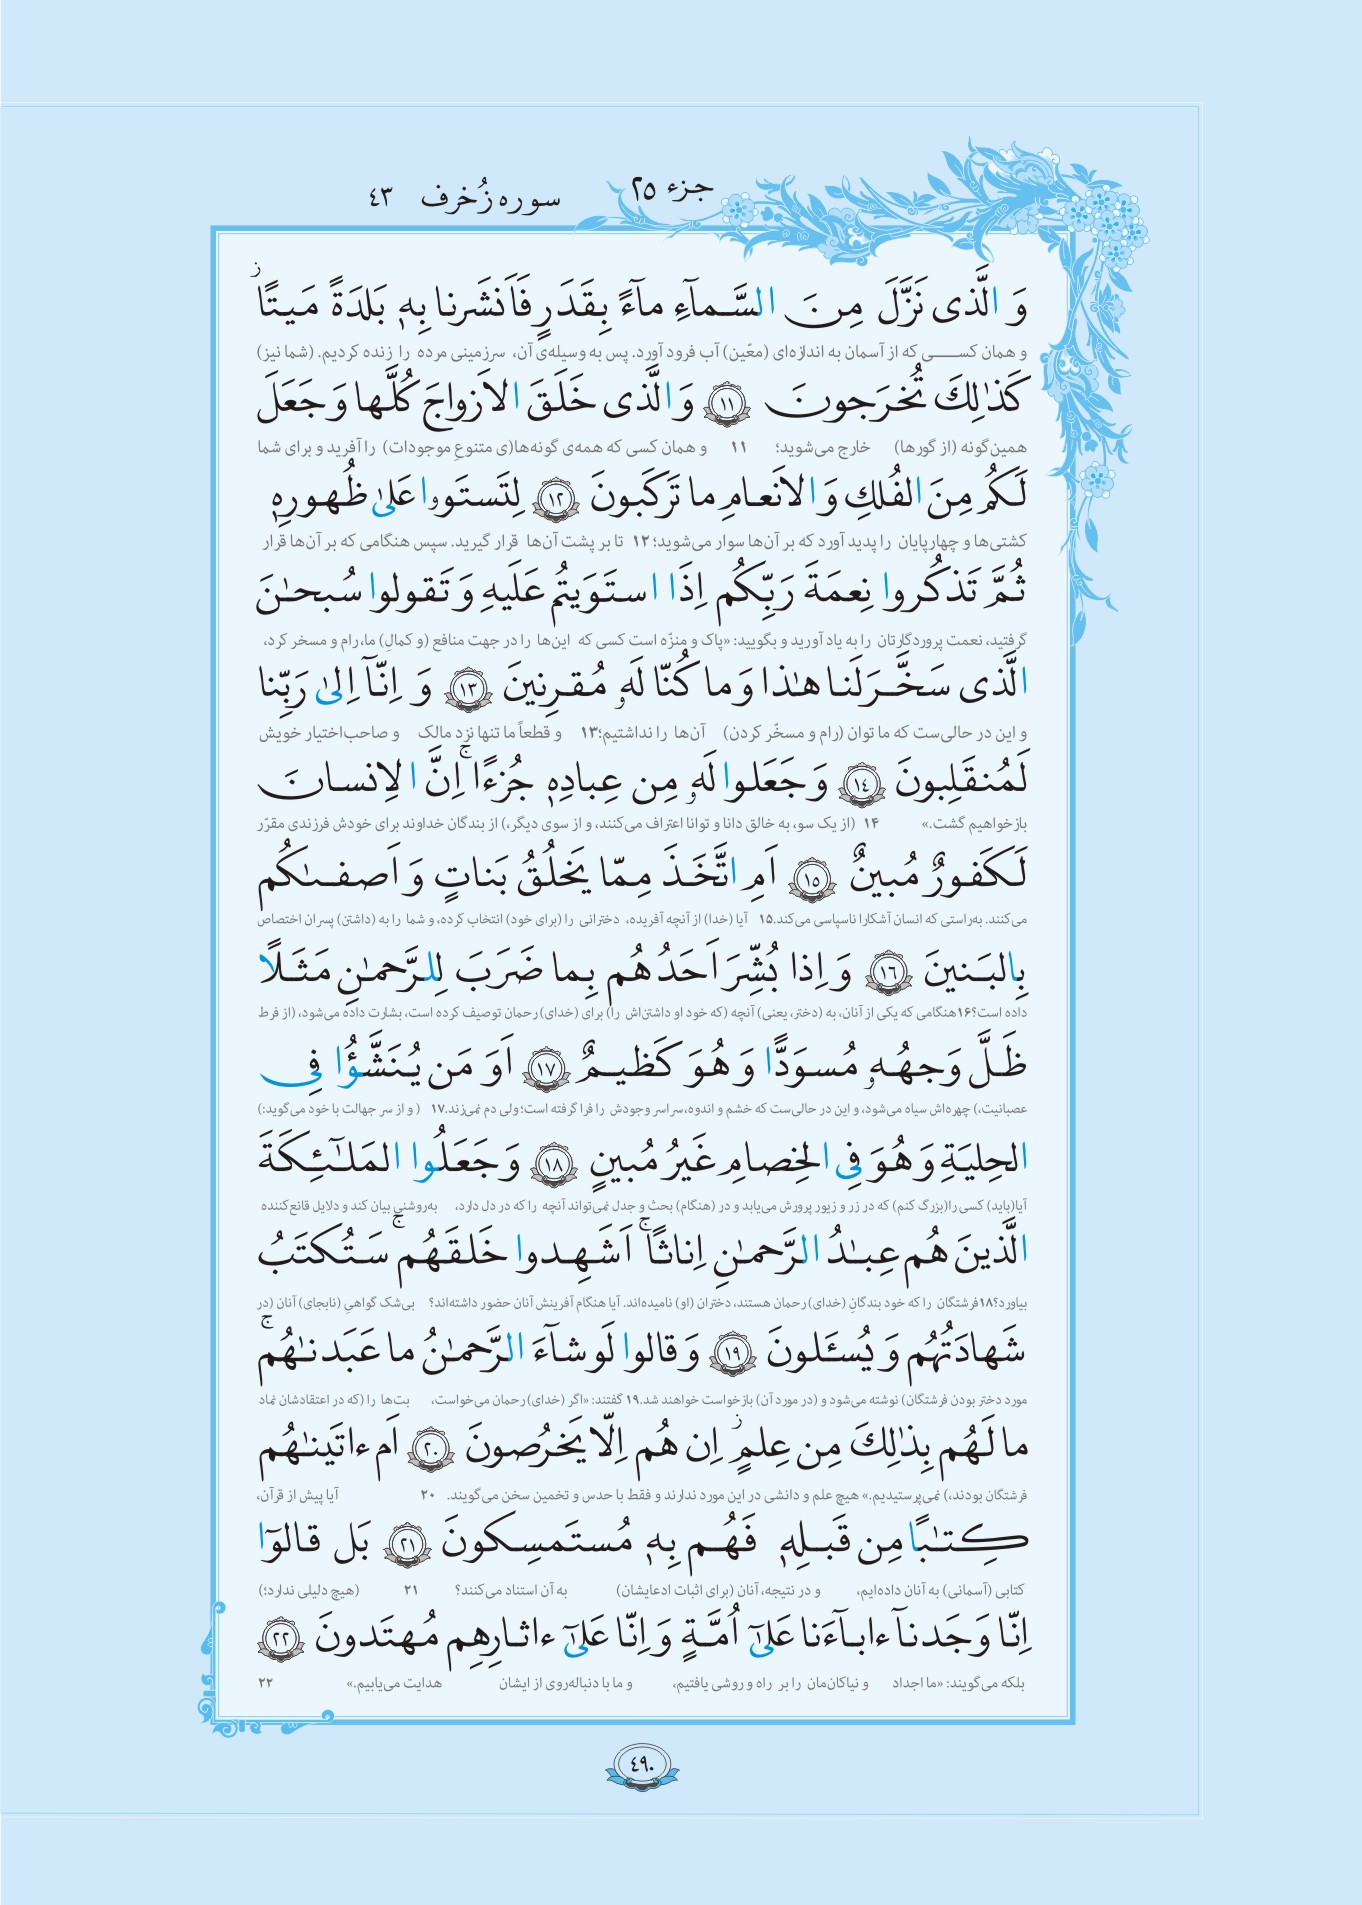 جزء ۲۵
سوره زُخرف ۴۳
وَ الَّذی نَزَّلَ مِنَ السَّمآءِ مآءً بِقَدَرٍ فَاَنشَرنا بِهٖ بَلدَةً مَیتًاۚ ز
و همان کســـی که از آسمان به اندازه‌ای (معّین) آب فرود آورد. پس به وسیله‌ی آن، سرزمینی مرده را زنده کردیم. (شما نیز)
کَذٰلِكَ تُخرَجونَ ۱۱ وَ الَّذی خَلَقَ الاَزواجَ کُلَّها وَ جَعَلَ
همین‌گونه (از گورها) خارج می‌شوید؛ ۱۱ و همان کسی که همه‌ی گونه‌ها(ی متنوعِ موجودات) را آفرید و برای شما
لَکُم مِنَ الفُلكِ وَ الاَنعامِ ما تَرکَبونَ ۱۲ لِتَستَوۥا عَلیٰ ظُهورِهٖ
کشتی‌ها و چهارپایان را پدید آورد که بر آن‌ها سوار می‌شوید؛ ۱۲ تا بر پشت آن‌ها قرار گیرید. سپس هنگامی که بر آن‌ها قرار
ثُمَّ تَذکُروا نِعمَةَ رَبِّکُم اِذَا استَوَیتُم عَلَیهِ وَ تَقولوا سُبحٰنَ
گرفتید، نعمت پروردگارتان را به یاد آورید و بگویید: «پاک و منزّه است کسی که این‌ها را در جهت منافع (و کمالِ) ما، رام و مسخر کرد،
الَّذی سَخَّرَ لَنا هٰذا وَ ما کُنّا لَهٗ مُقرِنینَ ۱۳ وَ اِنّآ اِلیٰ رَبِّنا
و این در حالی‌ست که ما توان (رام و مسخّر کردن) آن‌ها را نداشتیم؛ ۱۳ و قطعاً ما تنها نزد مالک و صاحب‌اختیار خویش
لَمُنقَلِبونَ ۱۴ وَ جَعَلوا لَهٗ مِن عِبادِهٖ جُزءًاۚ اِنَّ الاِنسانَ
بازخواهیم گشت.» ۱۴ (از یک سو، به خالق دانا و توانا اعتراف می‌کنند، و از سوی دیگر،) از بندگان خداوند برای خودش فرزندی مقرّر
لَکَفورٌ مُبینٌ ۱۵ اَمِ اتَّخَذَ مِمّا یَخلُقُ بَناتٍ وَ اَصفىٰکُم
می‌کنند. به‌راستی که انسان آشکارا ناسپاسی می‌کند. ۱۵ آیا (خدا) از آنچه آفریده، دخترانی را (برای خود) انتخاب کرده، و شما را به (داشتن) پسران اختصاص
بِالبَنینَ ۱۶ وَ اِذا بُشِّرَ اَحَدُهُم بِما ضَرَبَ لِلرَّحمٰنِ مَثَلًا
داده است؟ ۱۶ هنگامی که یکی از آنان، به (دختر، یعنی) آنچه (که خود او داشتن‌اش را) برای (خدای) رحمان توصیف کرده است، بشارت داده می‌شود، (از فرط
ظَلَّ وَجهُهٗ مُسوَدًّا وَ هُوَ کَظیمٌ ۱۷ اَوَ مَن یُنَشَّؤُا فِی
عصبانیت،) چهره‌اش سیاه می‌شود، و این در حالی‌ست که خشم و اندوه، سراسر وجودش را فرا گرفته است؛ ولی دم نمی‌زند. ۱۷ ( و از سر جهالت با خود می‌گوید:)
الحِلیَةِ وَ هُوَ فِی الخِصامِ غَیرُ مُبینٍ ۱۸ وَ جَعَلُوا المَلٰٓئِکَةَ
آیا(باید) کسی را(بزرگ کنم) که در زر و زیور پرورش می‌یابد و در (هنگام) بحث و جدل نمی‌تواند آنچه را که در دل دارد، به‌روشنی بیان کند و دلایل قانع‌کننده
الَّذینَ هُم عِبٰدُ الرَّحمٰنِ اِناثًاۚ اَشَهِدوا خَلقَهُمۚ سَتُکتَبُ
بیاورد؟ ۱۸ فرشتگان را که خود بندگانِ (خدای) رحمان هستند، دختران (او) نامیده‌اند. آیا هنگام آفرینش آنان حضور داشته‌اند؟ بی‌شک گواهیِ (نابجای) آنان (در
شَهادَتُهُم وَ یُسئَلونَ ۱۹ وَ قالوا لَو شآءَ الرَّحمٰنُ ما عَبَدنٰهُمۚ
مورد دختر بودن فرشتگان) نوشته می‌شود و (در مورد آن) بازخواست خواهند شد. ۱۹ گفتند: «اگر (خدای) رحمان می‌خواست، بت‌ها را (که در اعتقادشان نماد
ما لَهُم بِذٰلِكَ مِن عِلمٍ ز اِن هُم اِلّا یَخرُصونَ ۲۰ اَم ءاتَینٰهُم
فرشتگان بودند،) نمی‌پرستیدیم.» هیچ علم و دانشی در این مورد ندارند و فقط با حدس و تخمین سخن می‌گویند. ۲۰ آیا پیش از قرآن،
کِتٰبًا مِن قَبلِهٖ فَهُم بِهٖ مُستَمسِکونَ ۲۱ بَل قالوٓا
کتابی (آسمانی) به آنان داده‌ایم، و در نتیجه، آنان (برای اثبات ادعایشان) به آن استناد می‌کنند؟ ۲۱ (هیچ دلیلی ندارد؛)
اِنّا وَجَدنآ ءابآءَنا عَلیٰٓ اُمَّةٍ وَ اِنّا عَلیٰٓ ءاثارِهِم مُهتَدونَ ۲۲
بلکه می‌گویند: «ما اجداد و نیاکان‌مان را بر راه و روشی یافتیم، و ما با دنباله‌روی از ایشان هدایت می‌یابیم.» ۲۲
۴۹۰